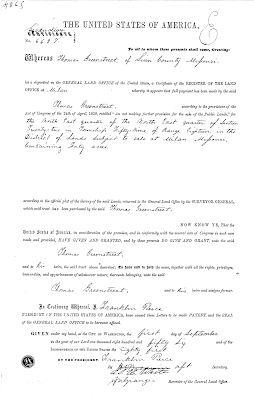 THE UNITED STATES OF AMERICA,
To all to whom these presents shall come, Greeting:
Whereas Thomas Greenstreet, of Linn County Missouri
ha s deposited in the GENERAL LAND OFFICE of the United States, a Certificate of the REGISTER OF THE LAND
OFFICE at Milan whereby it appears that full payment has been made by the said
Thomas Greenstreet, according to the provisions of the
Act of Congress of the 24th of April, 1820, entitled "An act making further provision for the sale of the Public Lands," for
the North East quarter of the North East quarter of Section
Twenty two in Township Fifty Nine of Range Eighteen in the
District of Lands subject to sale at Milan Missouri,
containing Forty acres
according to the official plat of the Survey of the said Lands, returned to the General Land Office by the SURVEYOR GENERAL,
which said tract has been purchased by the said Thomas Greenstreet,
NOW KNOW YE, That the
United States of America, in consideration of the premises, and in conformity with the several acts of Congress in such case
made and provided, HAVE GIVEN AND GRANTED, and by these presents DO GIVE AND GRANT, unto the said
Thomas Greenstreet,
and to his heirs, the said tract above described: To have and to hold the same, together with all the rights, privileges,
immunities, and appurtenances of whatsoever nature, thereunto belonging, unto the said
Thomas Greenstreet and to his heirs and assigns forever.
In Testimony Whereof, I, Franklin Pierce
PRESIDENT OF THE UNITED STATES OF AMERICA, have caused these Letters to be made PATENT, and the SEAL
of the GENERAL LAND OFFICE to be hereunto affixed.
GIVEN under my hand, at the CITY OF WASHINGTON, the first day of September
in the year of our Lord one thousand eight hundred and fifty six and of the
INDEPENDENCE OF THE UNITED STATES the Eighty first
BY THE PRESIDENT: Franklin Pierce
By Secretary.
Recorder of the General Land Office.